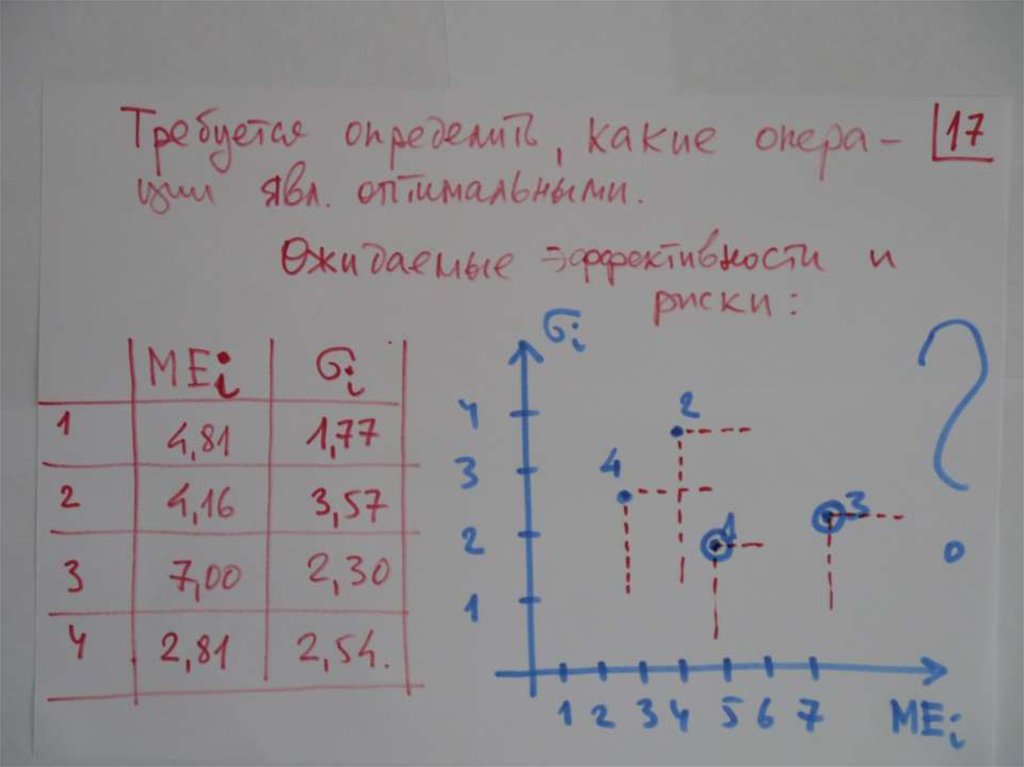 Требуется определить, какие опера-
17
ции явл. оптимальными.
Ожидаемые эффективности и
риски:
MEi σi
1 4,81 1,77
2 4,16 3,57
3 7,00 2,30
4 2,81 2,54.
σi
4
3
2
1
2
4
1
3
?
1 2 3 4 5 6 7 MEi